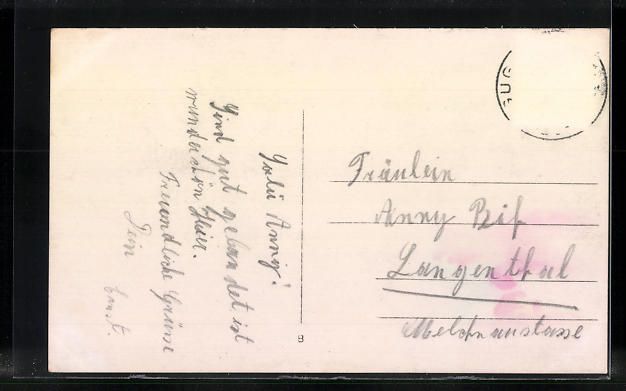 Salü Anny!
Sind gut gelandet ist
wunderschön hier.
Freundliche Grüsse
Dein
Ernst.
Fräulein
Anny
Langenthal
8